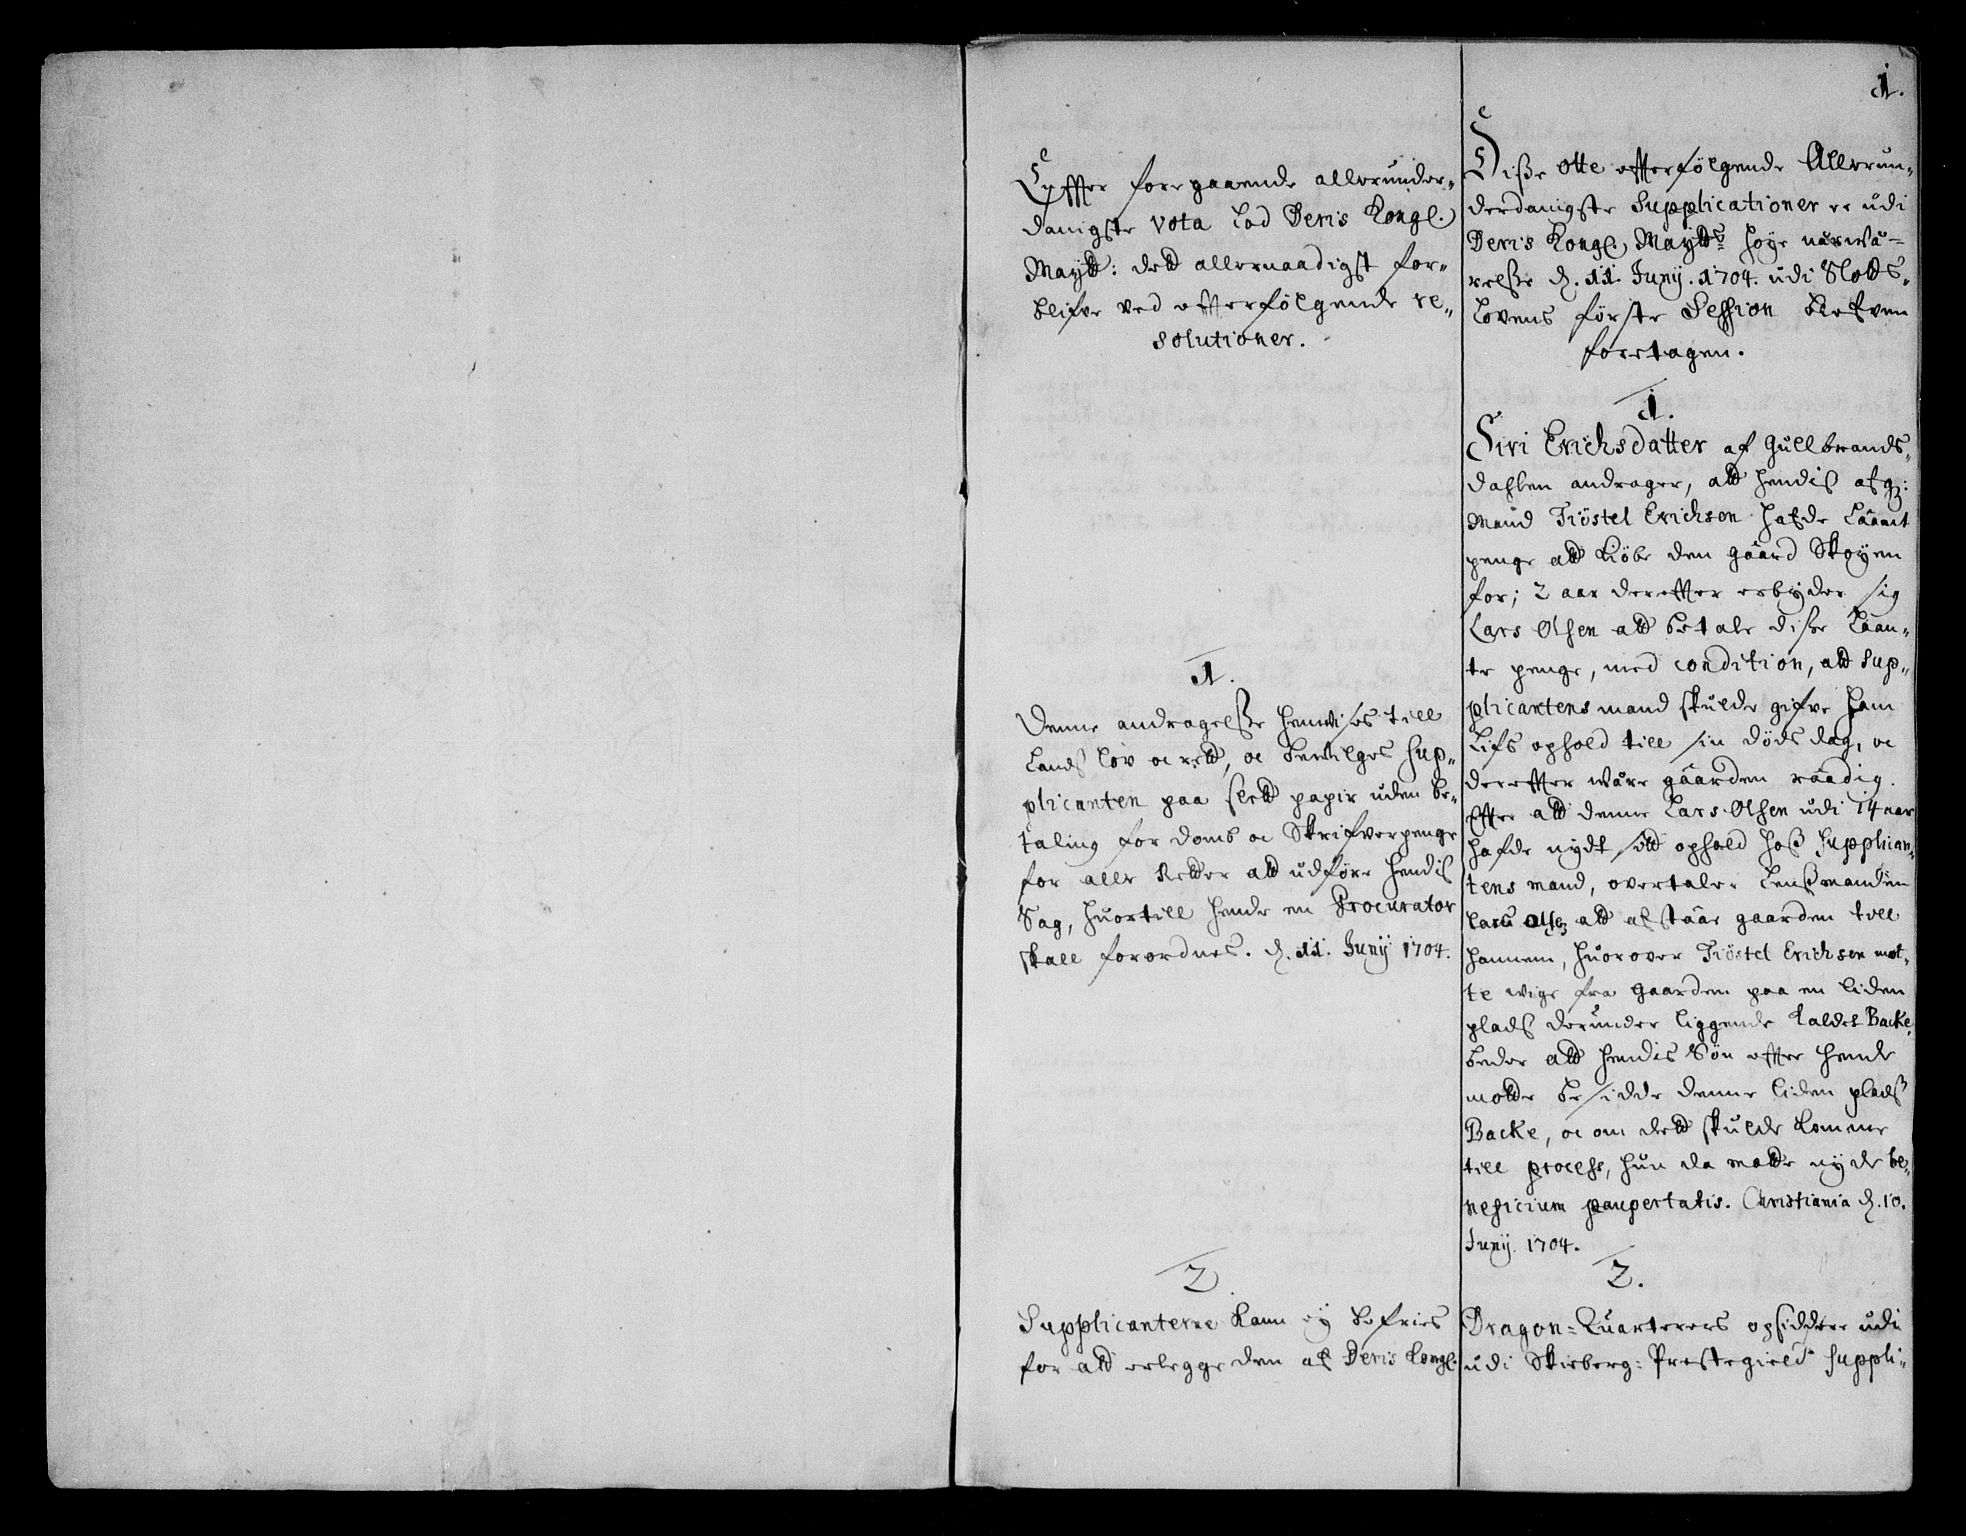 1.
Effter foregaaende allerunder-
danigste vota lod Deris Kongl.
Maytt: dett allernaadigst for-
blifve ved effterfølgende re-
solutioner.
1.
Denne andragelsse henvises till
Lands lov oc rett, oc bevilges Sup-
plicanten paa slett papir uden be-
taling for domb oc Skrifverpenge
for alle Retter att udføre hendis
Sag, huortill hende en Procurator
skall forordnes. d. 11. Junij 1704.
2.
Supplicanterne kann ey befries
for att erlegge den af Deris Kongl.
Disse otte effterfølgende Allerun-
derdanigste Supplicationer ere udi
Deris Kongl. Maytts høye nærvæ-
relsse d. 11. Junij. 1704. udi Slotts-
Lovens første Session blefven
foretagen.
1.
Siri Erichsdatter af Gullbrands-
dahlen andrager, att hendis afg:
Mand Tiøstel Erichsen hafde laant
penge att kiøbe den gaard Skoyen
for; 2 aar dereffter erbyder sig
Lars Olsen att betale disse laan-
te penge, med condition, att Sup-
plicantens mand skulde gifve ham
Lifs ophold till sin døds dag, oc
dereffter være gaarden raadig.
Effter att denne Lars Olsen udi 14 aar
hafde nydt sitt ophold hoss Supplican-
tens mand, overtaler Lenssmanden
Lars Olsen att afstaae gaarden till
hannem, huorover Tiøstel Erichsen mot-
te vige fra gaarden paa en liden
plads derunder liggende kaldet Backe,
beder att hendis Søn effter hende
motte besidde denne liden plads
Backe, oc om dett skulde komme
till process, hun da motte nyde be-
neficium paupertatis. Christiania d. 10.
Junij 1704.
2.
Dragon-Quarterers opsiddere udi
udi Skieberg: Prestegield Suppli-